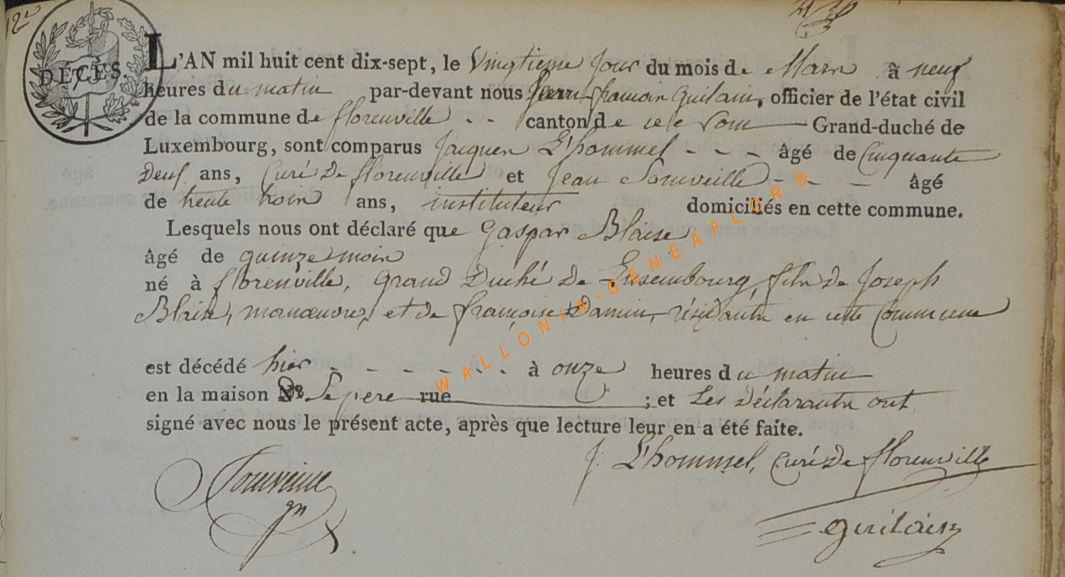 12e
DÉCÈS.
L'AN mil huit cent dix-sept, le Vingtieme Jour du mois de Mars à neuf
heures du matin par-devant nous Pierre françois Guilain, officier de l'état civil
de la commune de florenville - - canton de ce nom Grand-duché de
Luxembourg, sont comparus Jacques L'hommel - - - âgé de Cinquante
Deux ans, Curé De florenville et Jean - - - âgé
de trente trois ans, instituteur domiciliés en cette commune.
Lesquels nous ont déclaré que Gaspar Blaise
âgé de quinze mois
né à florenville, Grand Duché de Luxembourg, fils de Joseph
Blaise, manœuvre, et de françoise résidants en cette Commune
est décédé hier - - - - - - à onze heures du matin
en la maison De Se pere rue ; et Les Déclarants ont
signé avec nous le présent acte, après que lecture leur en a été faite.
J. L'hommel, Curé De florenville
guilain
WALLONIA-GENEAFLOR®